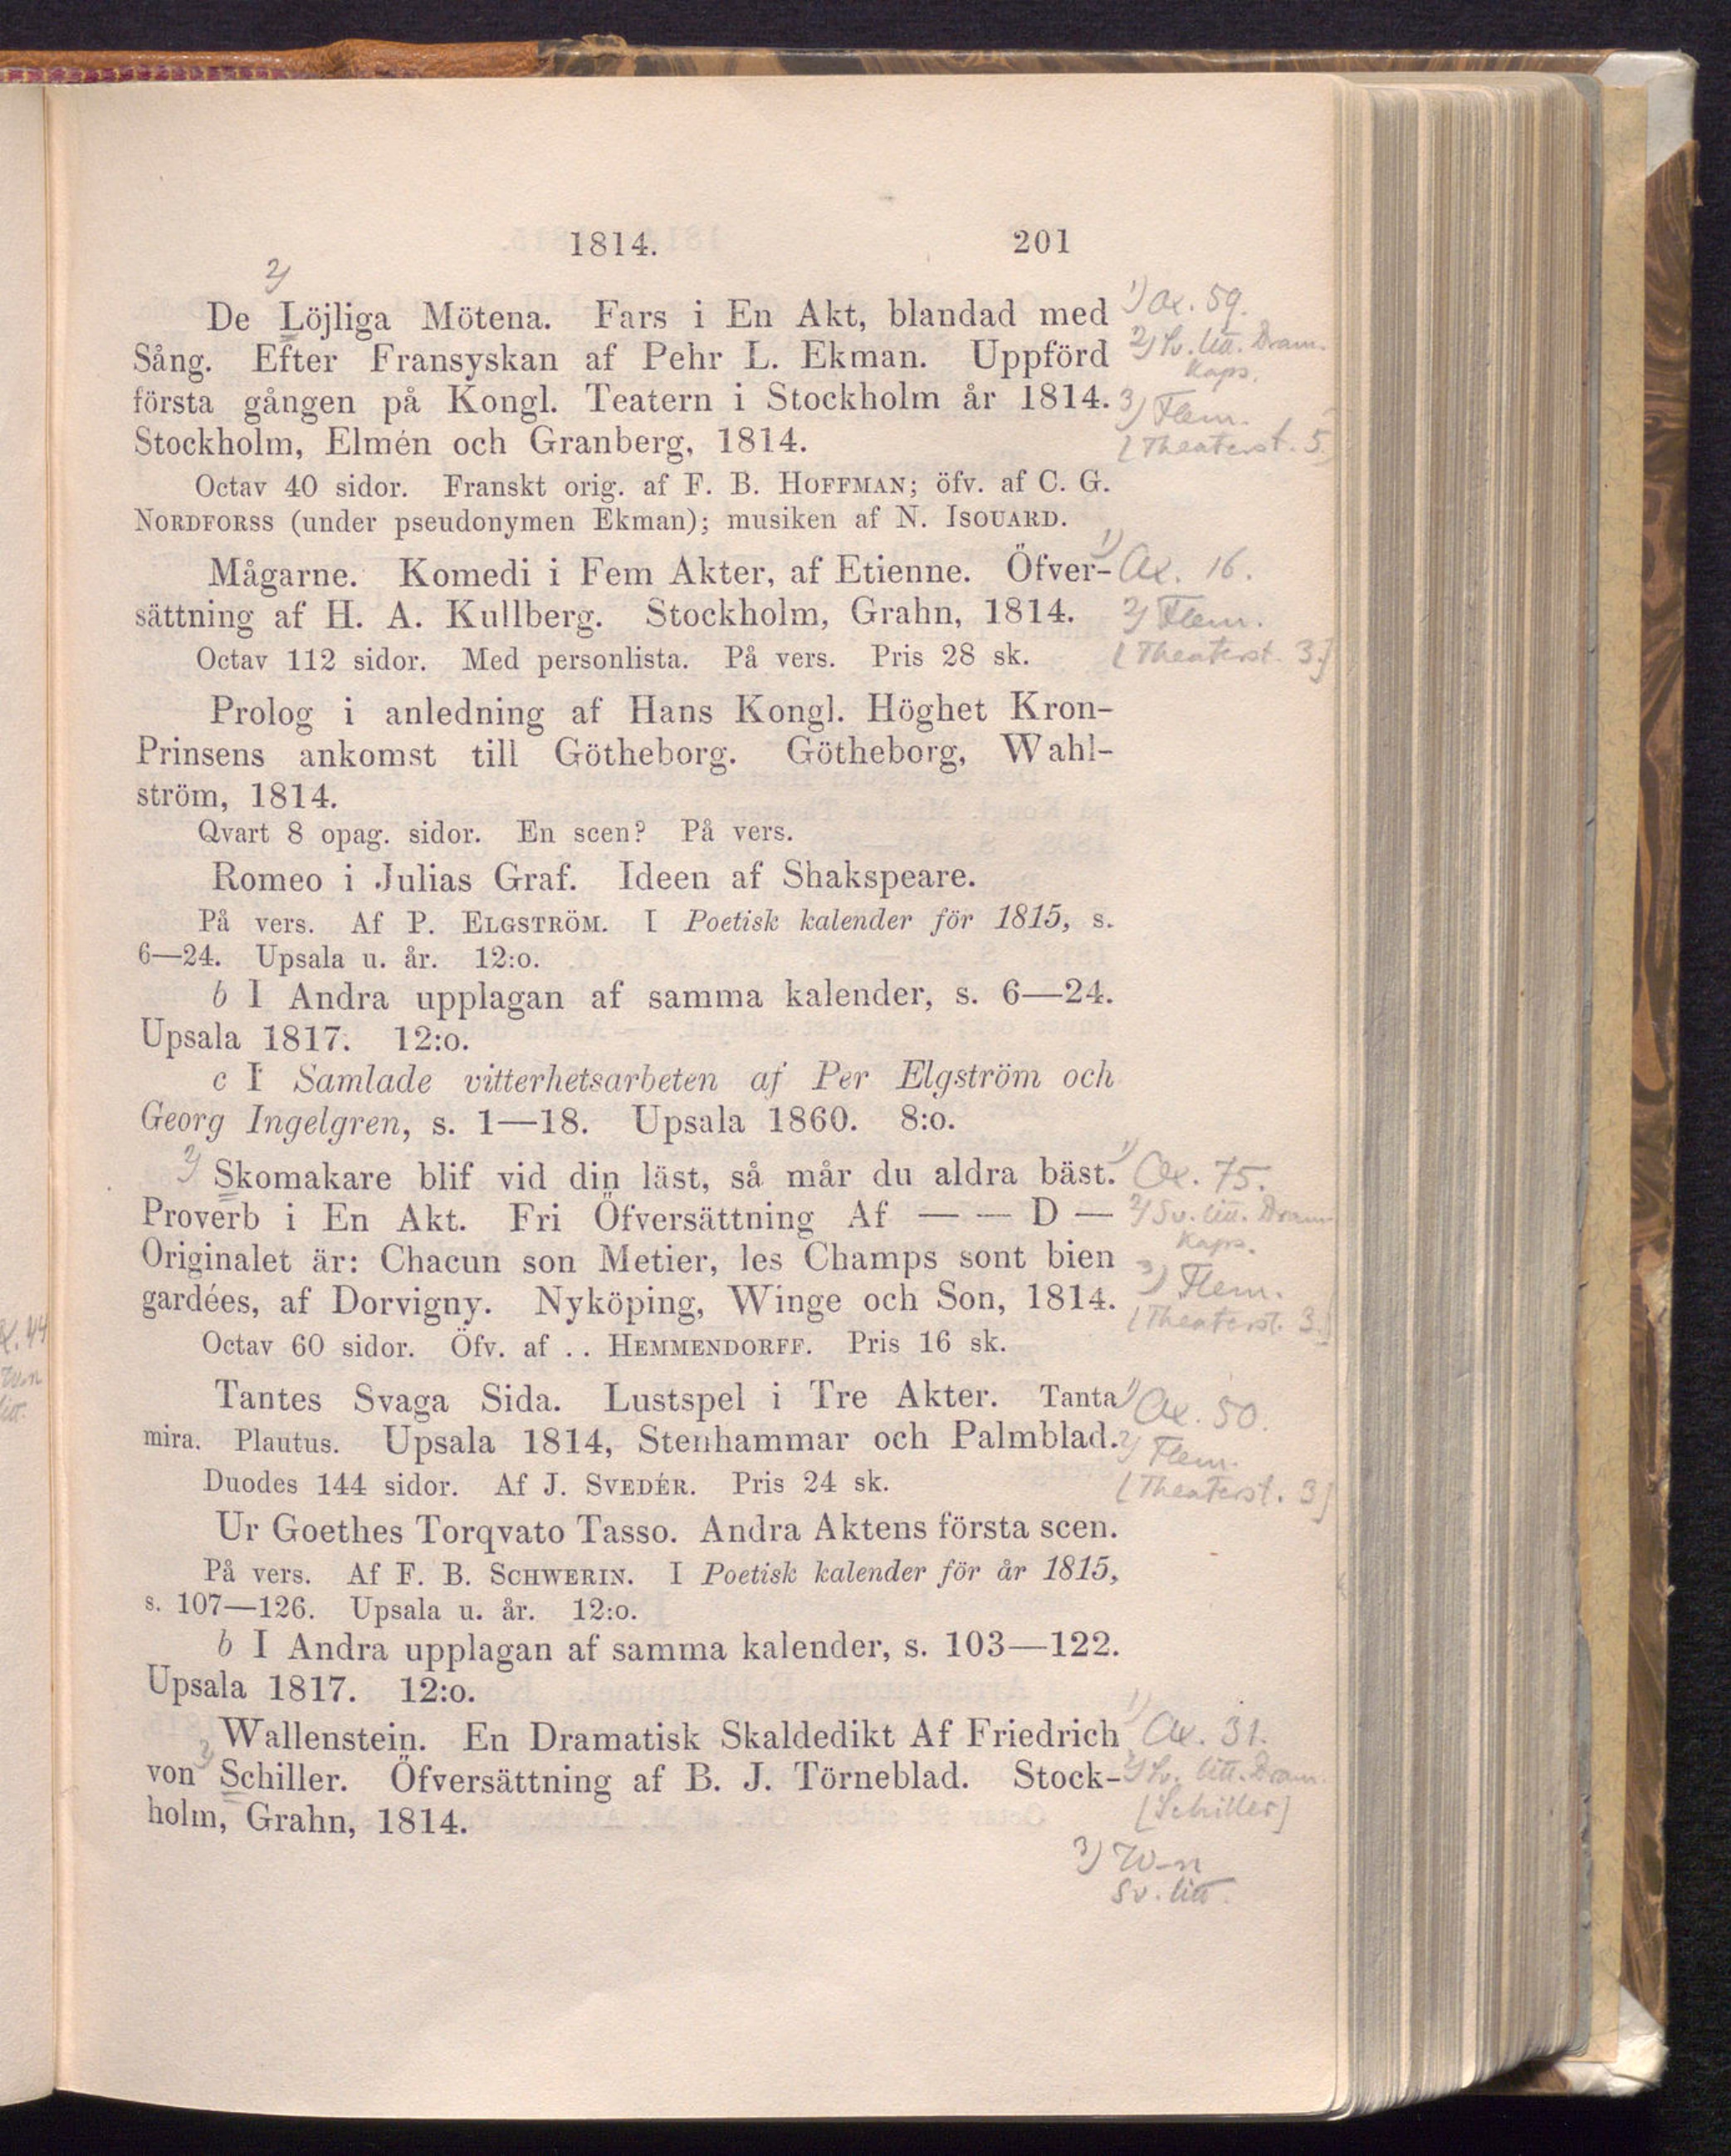 1814. 201
2)
De Löjliga Mötena. Fars i En Akt, blandad med 1) Ax. 59.
Sång. Efter Fransyskan af Pehr L. Ekman. Uppförd 2) Sv. litt. Dram.
Kaps.
första gången på Kongl. Teatern i Stockholm år 1814. 3) Flem.
Stockholm, Elmén och Granberg, 1814. [Theaterst. 5.]
Octav 40 sidor. Franskt orig. af F. B. HOFFMAN; öfv. af C. G.
NORDFORSS (under pseudonymen Ekman); musiken af N. ISOUARD.
Mågarne. Komedi i Fem Akter, af Etienne. Öfver- 1) Ax. 16.
sättning af H. A. Kullberg. Stockholm, Grahn, 1814. 2) Flem.
Octav 112 sidor. Med personlista. På vers. Pris 28 sk. [Theaterst. 3.]
Prolog i anledning af Hans Kongl. Höghet Kron-
Prinsens ankomst till Götheborg. Götheborg, Wahl-
ström, 1814.
Qvart 8 opag. sidor. En scen? På vers.
Romeo i Julias Graf. Ideen af Shakspeare.
På vers. Af P. ELGSTRÖM. I Poetisk kalender för 1815, s.
6—24. Upsala u. år. 12:o.
b I Andra upplagan af samma kalender, s. 6—24.
Upsala 1817. 12:o.
c I Samlade vitterhetsarbeten af Per Elgström och
Georg Ingelgren, s. 1—18. Upsala 1860. 8:o.
2) Skomakare blif vid din läst, så mår du aldra bäst. 1) Ax. 75.
Proverb i En Akt. Fri Öfversättning Af — — D — 2) Sv. litt. Dram.
Kaps.
Originalet är: Chacun son Metier, les Champs sont bien
gardées, af Dorvigny. Nyköping, Winge och Son, 1814. 3) Flem.
[Theaterst. 3.]
Octav 60 sidor. Öfv. af . . HEMMENDORFF. Pris 16 sk.
Tantes Svaga Sida. Lustspel i Tre Akter. Tanta 1) Ax. 50.
mira. Plautus. Upsala 1814, Stenhammar och Palmblad. 2) Flem.
Duodes 144 sidor. Af J. SVEDÉR. Pris 24 sk. [Theaterst. 3]
Ur Goethes Torqvato Tasso. Andra Aktens första scen.
På vers. Af F. B. SCHWERIN. I Poetisk kalender för år 1815,
s. 107—126. Upsala u. år. 12:o.
b I Andra upplagan af samma kalender, s. 103—122.
Upsala 1817. 12:o.
Wallenstein. En Dramatisk Skaldedikt Af Friedrich 1) Ax. 31.
von 2) Schiller. Öfversättning af B. J. Törneblad. Stock- 2) Sv. litt. Dram.
holm, Grahn, 1814. [Schiller]
3) W-n
Sv. litt.